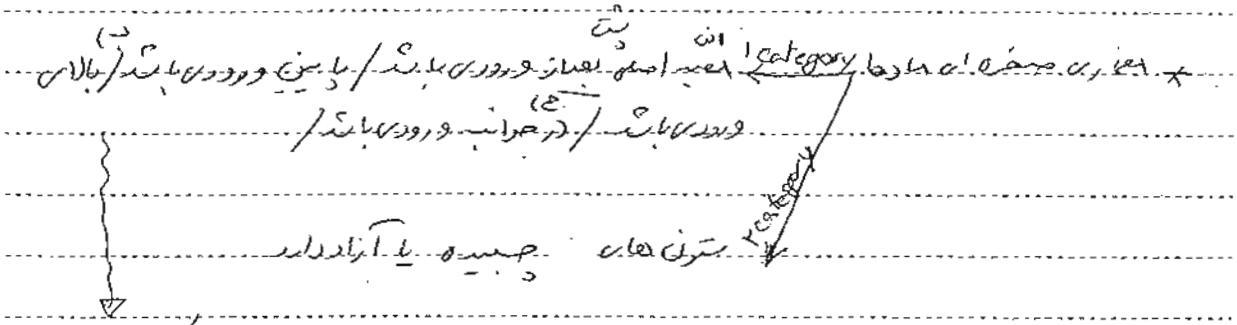 * معماری صخره ای مادها 1 category الف) مقبره اصلی پشت فضای ورودی باشد / پایین ورودی باشد / ب) بالای
ورودی باشد / ج) در جوانب ورودی باشد /
2 category ستون های چسبیده یا آزاد دارد